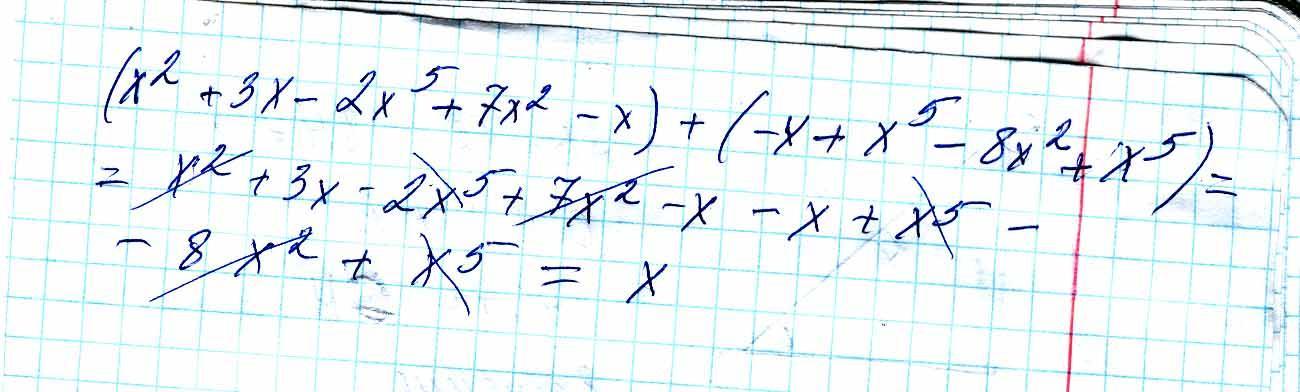 (x² + 3x - 2x⁵ + 7x² - x) + (-x + x⁵ - 8x² + x⁵) =
= x² + 3x - 2x⁵ + 7x² - x - x + x⁵ -
- 8x² + x⁵ = x